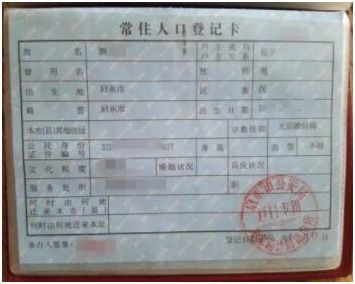 常住人口登记卡
姓 名 户主或与户主关系 长子
曾用名 性别 男
出生地 启东市 民族 汉
籍贯 启东市 出生日期
本市(县)其他住址 宗教信仰 无宗教信仰
公民身份证件编号 32 017 身高 血型 不明
文化程度 婚姻状况 兵役状况
服务处所
何时由何地迁来本市(县)
何时由何地迁来本址
承办人签章: 登记日期:
户口专用